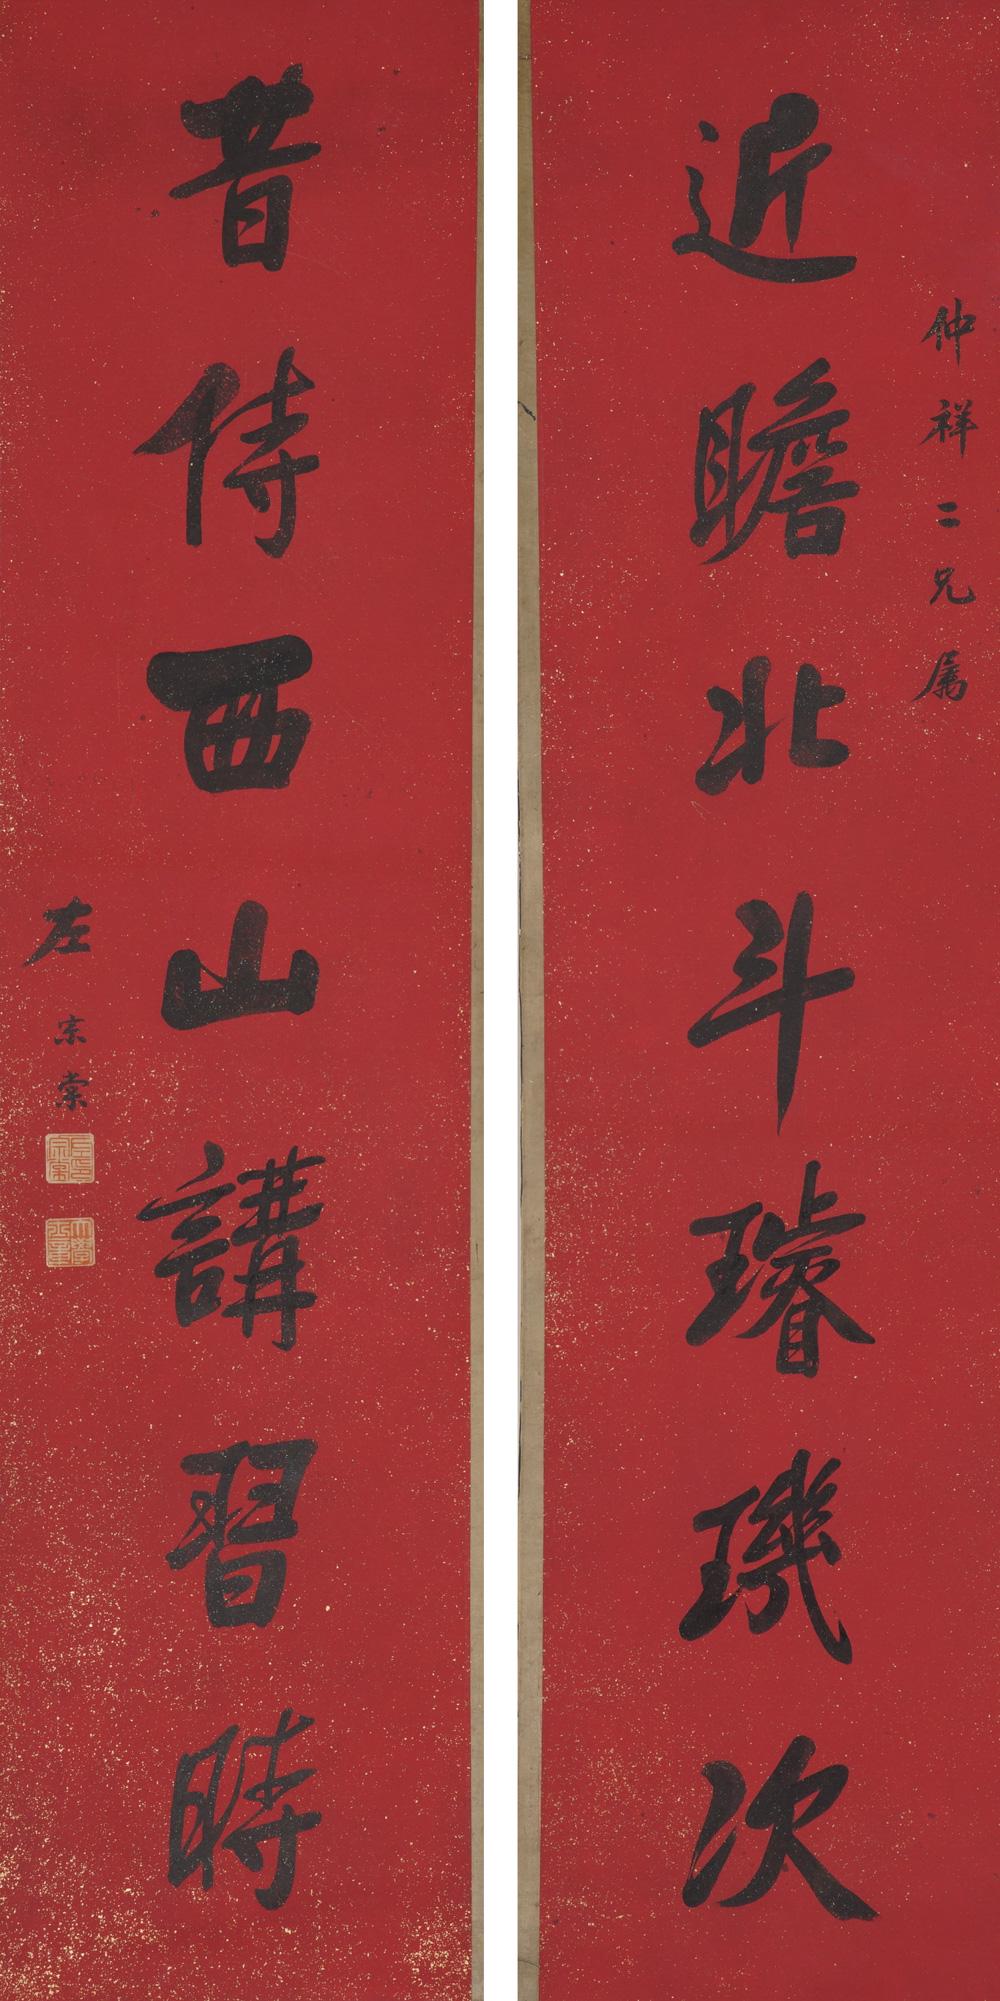 仲祥二兄属
近瞻北斗璿璣次
昔侍西山講習時
左宗棠